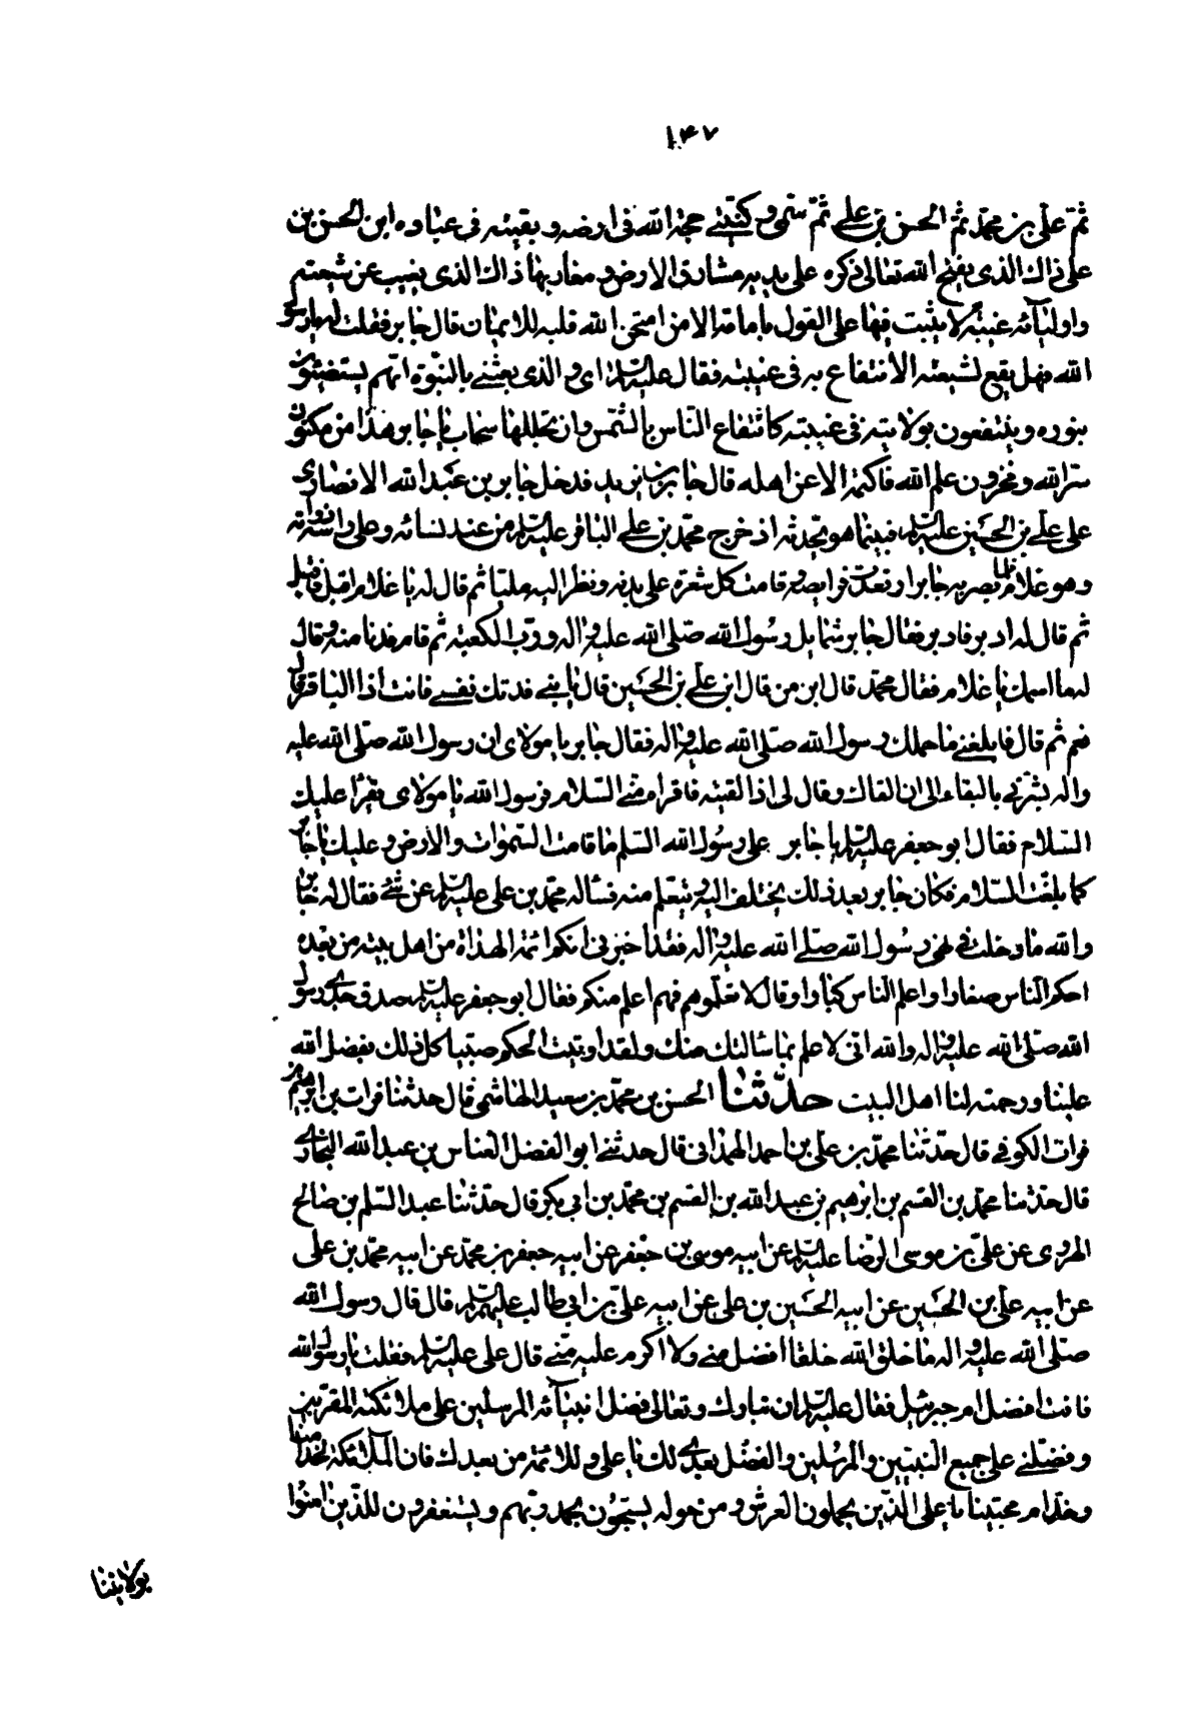 ١٤٧
ثمّ علىّ بن محمّد ثم الحسن بن علي ثمّ سمّى وكنيّى حجة الله فى ارضه و بقيته فى عباده ابن الحسن بن
على ذاك الذى يفتح الله تعالى ذكره على يديه مشارق الارض و مغاربها ذاك الذى يغيب عن شيعته
واوليآئه غيبة لا يثبت فيها على القول بامامته الا من امتحن الله قلبه للايمان قال جابر فقلت له يا رسول
الله فهل يقع لشيعته الانتفاع به فى غيبته فقال عليه السلم اى و الذى بعثنى بالنبّوة انهم يستضيئون
بنوره و ينتفعون بولايته فى غيبته كانتفاع النّاس بالشّمس وان تجللها سحاب يا جابر هذا من مكنون
سرّ الله و مخزون علم الله فاكتمه الا عن اهله قال جابر بن يزيد فدخل جابر بن عبد الله الانصارى
على علي بن الحسين عليه السلم فبينما هو يحدثه اذ خرج محمّد بن علي الباقر عليه السلم من عند نسائه و على راسه ذوابة
وهو غلام فلما بصر به جابر ارتعدت فرايصه و قامت كل شعرة على بدنه و نظر اليه مليّا ثم قال له يا غلام اقبل فاقبل
ثم قال له ادبر فادبر فقال جابر شمايل رسول الله صلى الله عليه و اله و ربّ الكعبة ثم قام فدنا منه و قال
له ما اسمك يا غلام فقال محمّد قال ابن من قال ابن علي بن الحسين قال يا بنى فدتك نفسى فانت اذا الباقر قال
نعم ثم قال فابلغنى ما حملك رسول الله صلى الله عليه و اله فقال جابر يا مولاى ان رسول الله صلّى الله عليه
واله بشّرنى بالبقاء الى ان القاك و قال لى اذا لقيته فاقراه منى السلام فرسول الله يا مولاى يقرأ عليك
السّلام فقال ابو جعفر عليه السلم يا جابر على رسول الله السّلم ما قامت السّموات و الارض و عليك يا جابر
كما بلغت السّلام فكان جابر بعد ذلك يختلف اليه و يتعلم منه فسأله محمّد بن على عليه السلم عن شئ فقال له جابر
والله ما دخلت فى نهى رسول الله صلى الله عليه و اله فقد اخبرنى انكم ائمة الهداة من اهل بيته من بعده
احكم النّاس صغارا و اعلم النّاس كبارا و قال لا تعلّموهم فهم اعلم منكم فقال ابو جعفر عليه السلم صدق جدى رسول
الله صلى الله عليه و اله والله انى لاعلم بما سالتك منك و لقد اوتيت الحكم صبيّا كل ذلك بفضل الله
علينا و رحمته لنا اهل البيت حدّثنا الحسن بن محمّد بن سعيد الهاشمى قال حدثنا فرات بن ابرهيم بن
فرات الكوفى قال حدّثنا محمّد بن علي بن احمد الهمدانى قال حدثنى ابو الفضل العباس بن عبد الله البخارى
قال حدّثنا محمّد بن القسم بن ابرهيم بن عبد الله بن القسم بن محمّد بن ابى بكر قال حدّثنا عبد السّلم بن صالح
الهروى عن علىّ بن موسى الرضا عليه السلم عن ابيه موسى بن جعفر عن ابيه جعفر بن محمّد عن ابيه محمّد بن على
عن ابيه علىّ بن الحسين عن ابيه الحسين بن على عن ابيه علىّ بن ابى طالب عليهم السلم قال قال رسول الله
صلّى الله عليه و اله ما خلق الله خلقا افضل منى ولا اكرم عليه منّى قال على عليه السلم فقلت يا رسول الله
فانت افضل ام جبرئيل فقال عليه السلم ان تبارك و تعالى فضل انبيآئه المرسلين على ملائكته المقرّبين
و فضّلنى على جميع النبيّين و المرسلين و الفضل بعدى لك يا على و للائمة من بعدك فان الملائكة لخدامنا
وخدّام محبّينا يا على الذّين يحملون العرش و من حوله يسبّحون بحمد ربّهم و يستغفرون للذّين امنوا
بولايتنا